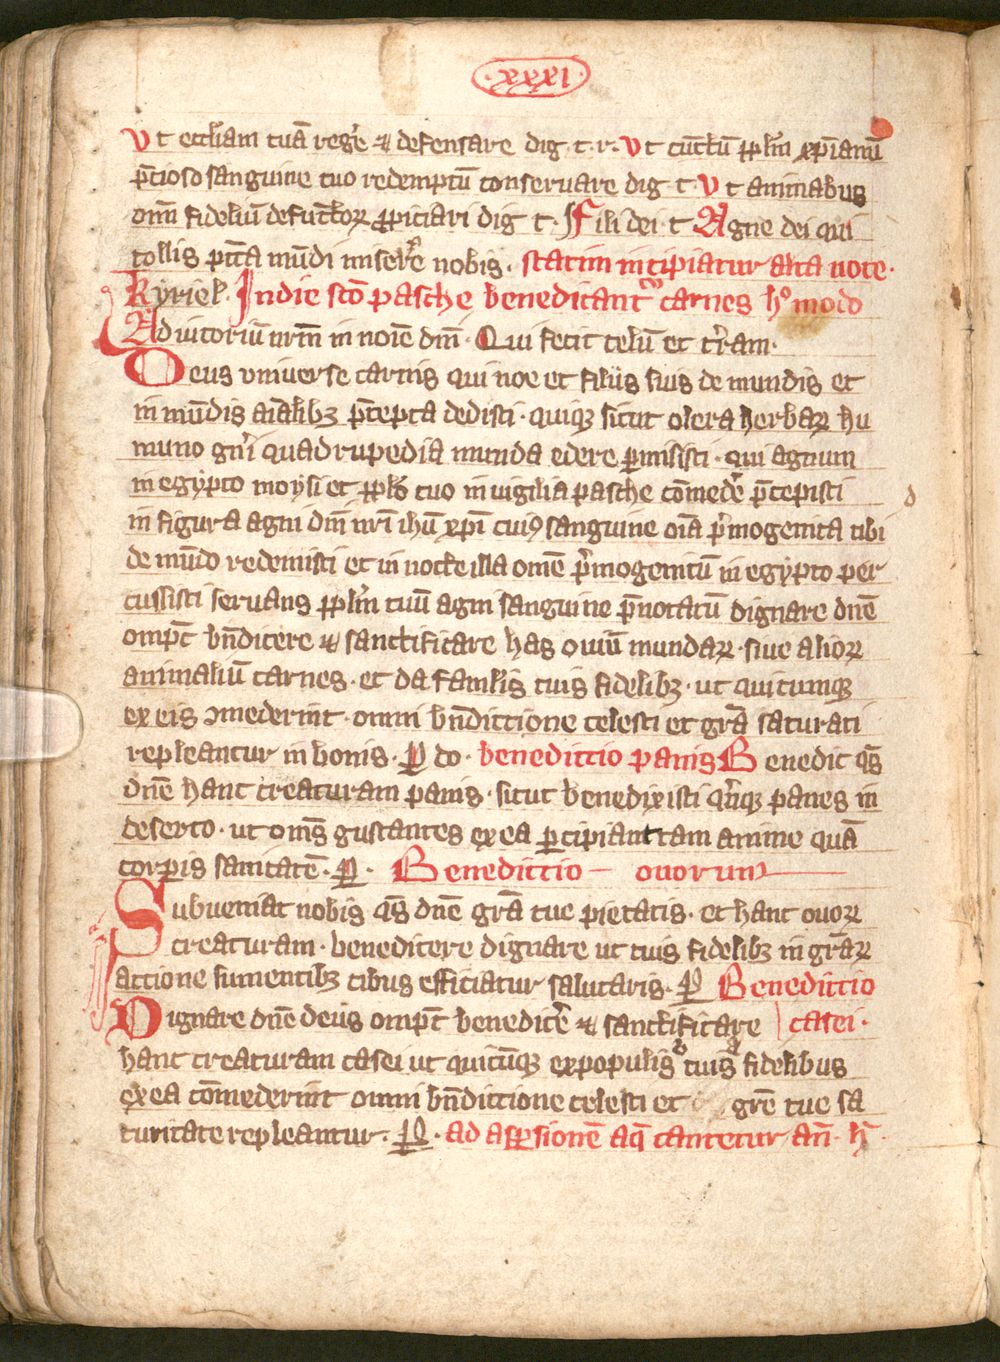 ·xxxi·
Ut eccl̄iam tuā reg̾e ⁊ defensare dig. t. r. Ut cūctū pp̄lm xp̄ianū
p̄cioso sanguine tuo redemptū conseruare dig. t. Ut animabus
om̄ fideliū defūctoꝝ ꝓpiciari dig t. Fili dei. t Agne dei qui
tollis pc̄ta mūdi miserē nobis. statim incipiatur alta uoce.
Kyriel. In die sc̄o pasche benedicant᷑ carnes hº modo
Adiutoriū nr̄m in noīe dn̄i. Qui fecit celū et tr̄am.
Deus vniuerse carnis qui noe et filiis suis de mundis et
in mūdis aīalibꝫ p̄cepta dedisti. quiqꝫ sicut olera herbaꝝ hu
mano gn̄i quadrupedia munda edere ꝑmisisti. qui agnum
in egypto moysi et pp̄lo tuo in uigilia pasche cōmedē p̄cepisti
in figura agni dn̄i nr̄i ih̄u xp̄i cuiꝰ sanguine oīa p̄mogenita tibi
de mūdo redemisti et in nocte illa omē p̄mogenitū in egypto per
cussisti seruans pp̄lm tuū agni sanguine p̄notatū dignare dn̄e
omp̄c bn̄dicere ⁊ sanctificare has ouiū mundaꝝ. siue alioꝝ
animaliū carnes. et da famlis tuis fidelibꝫ. ut quicumqꝫ
ex eis ꝯmederint. omni bn̄dictione celesti et gr̄a saturati
repleantur in bonis. P do. benedictio panis Benedic qs̄
dn̄e hanc creaturam panis. sicut benedixisti qn̄qꝫ panes in
deserto. ut oms̄ gustantes ex ea ꝑcipiant tam anime quā
corꝑis sanitatē. P. Benedictio ouorum
Subueniat nobis qs̄ dn̄e gr̄a tue pietatis. et hanc ouoꝝ
creaturam. benedicere dignare ut tuis fidelibꝫ in gr̄aꝝ
actione sumentibꝫ cibus efficiatur salutaris. P Benedictio
Dignare dn̄e deus omp̄c benedicē ⁊ sanctificare casei.
hanc creaturam casei ut quicūqꝫ ex populis tuis fidelibus
ex ea cōmederint omni bn̄dictione celesti et grē tue sa
turitate repleantur. P. ad asꝑsionē aq̄ cantetur an̄. h̄